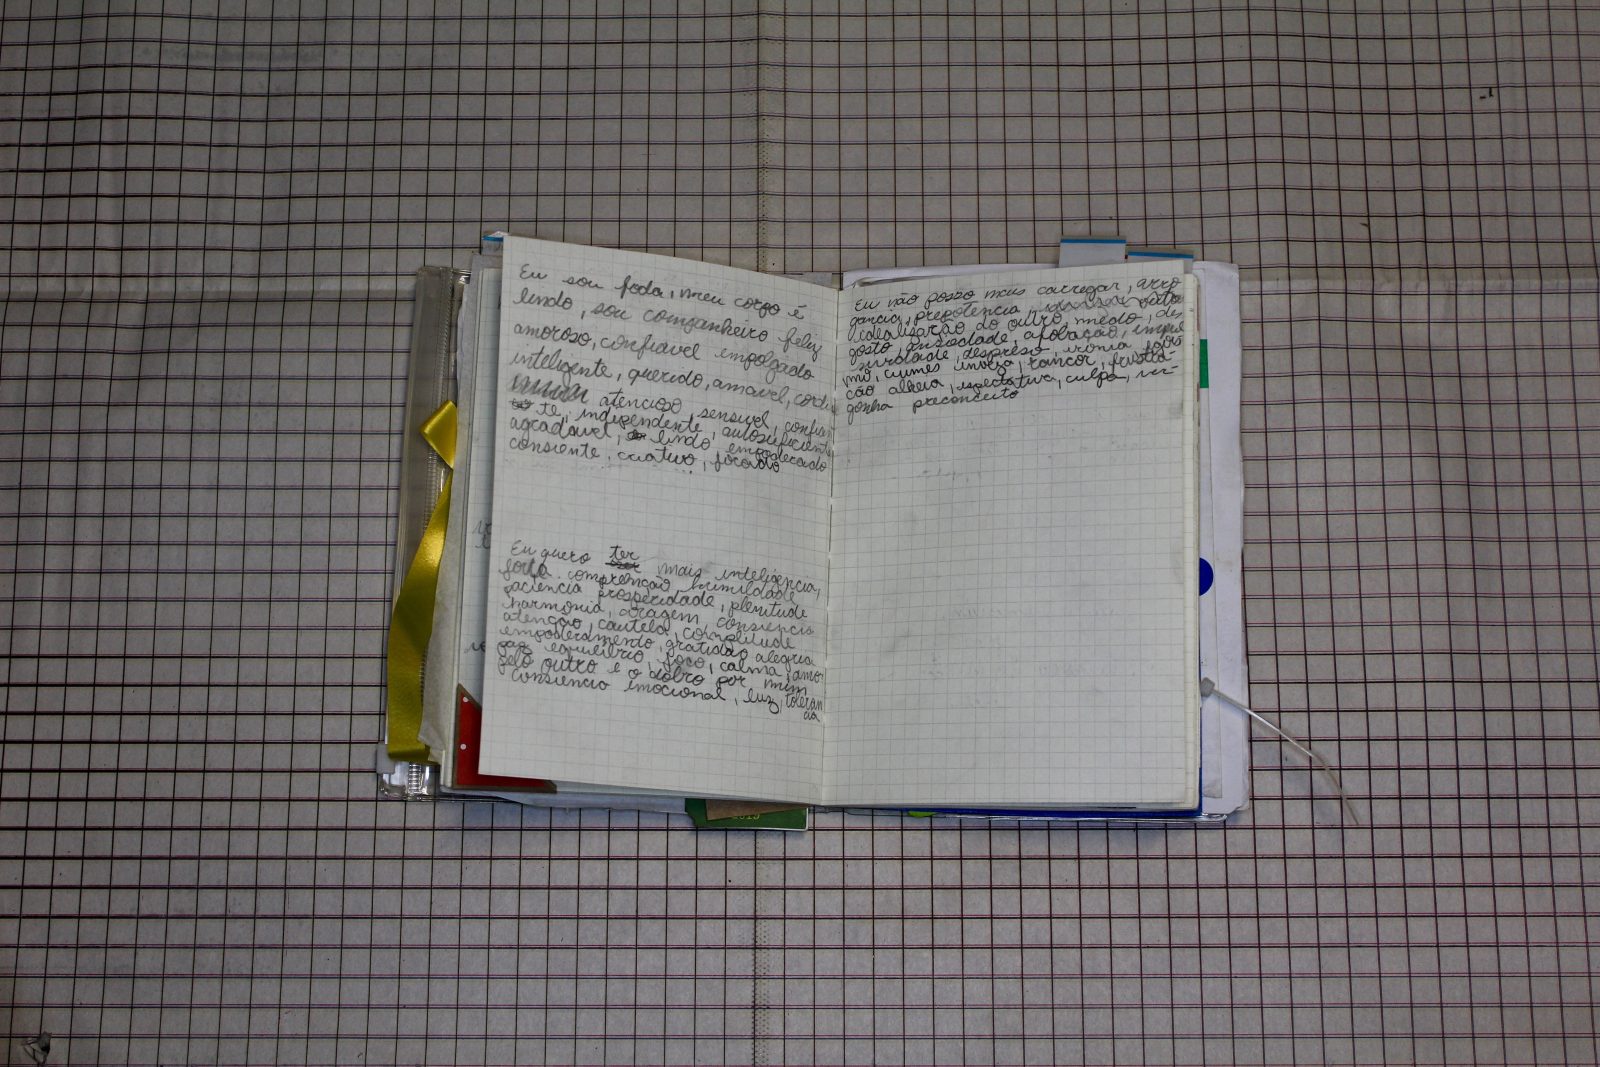 Eu sou foda, meu corpo é
lindo, sou companheiro feliz
amoroso, confiavel empolgado
inteligente, querido, amavel, cordi
atencioso, sensivel, confian
te, independente, autosuficiente
agradavel, lindo empoderado
consiente, criativo, focado
Eu quero ter mais inteligencia,
força. comprenção humildade
paciencia prosperidade, plenitude
harmonia, coragem consiencia
atenção, cautela, completude
empoderamento, gratidão alegria
paz equilibrio, foco, calma, amor
pelo outro e o dobro por mim
consiencia emocional, luz, toleran
cia
Eu não posso mais carregar, arro
gancia, prepotencia
idealização do outro, medo, des
gosto, ansiedade, afobação, impul
sividade, despreso, ironia
mo, ciumes inveja, rancor, frustra-
ção alheia, espectativa, culpa, ver-
gonha preconceito
2015